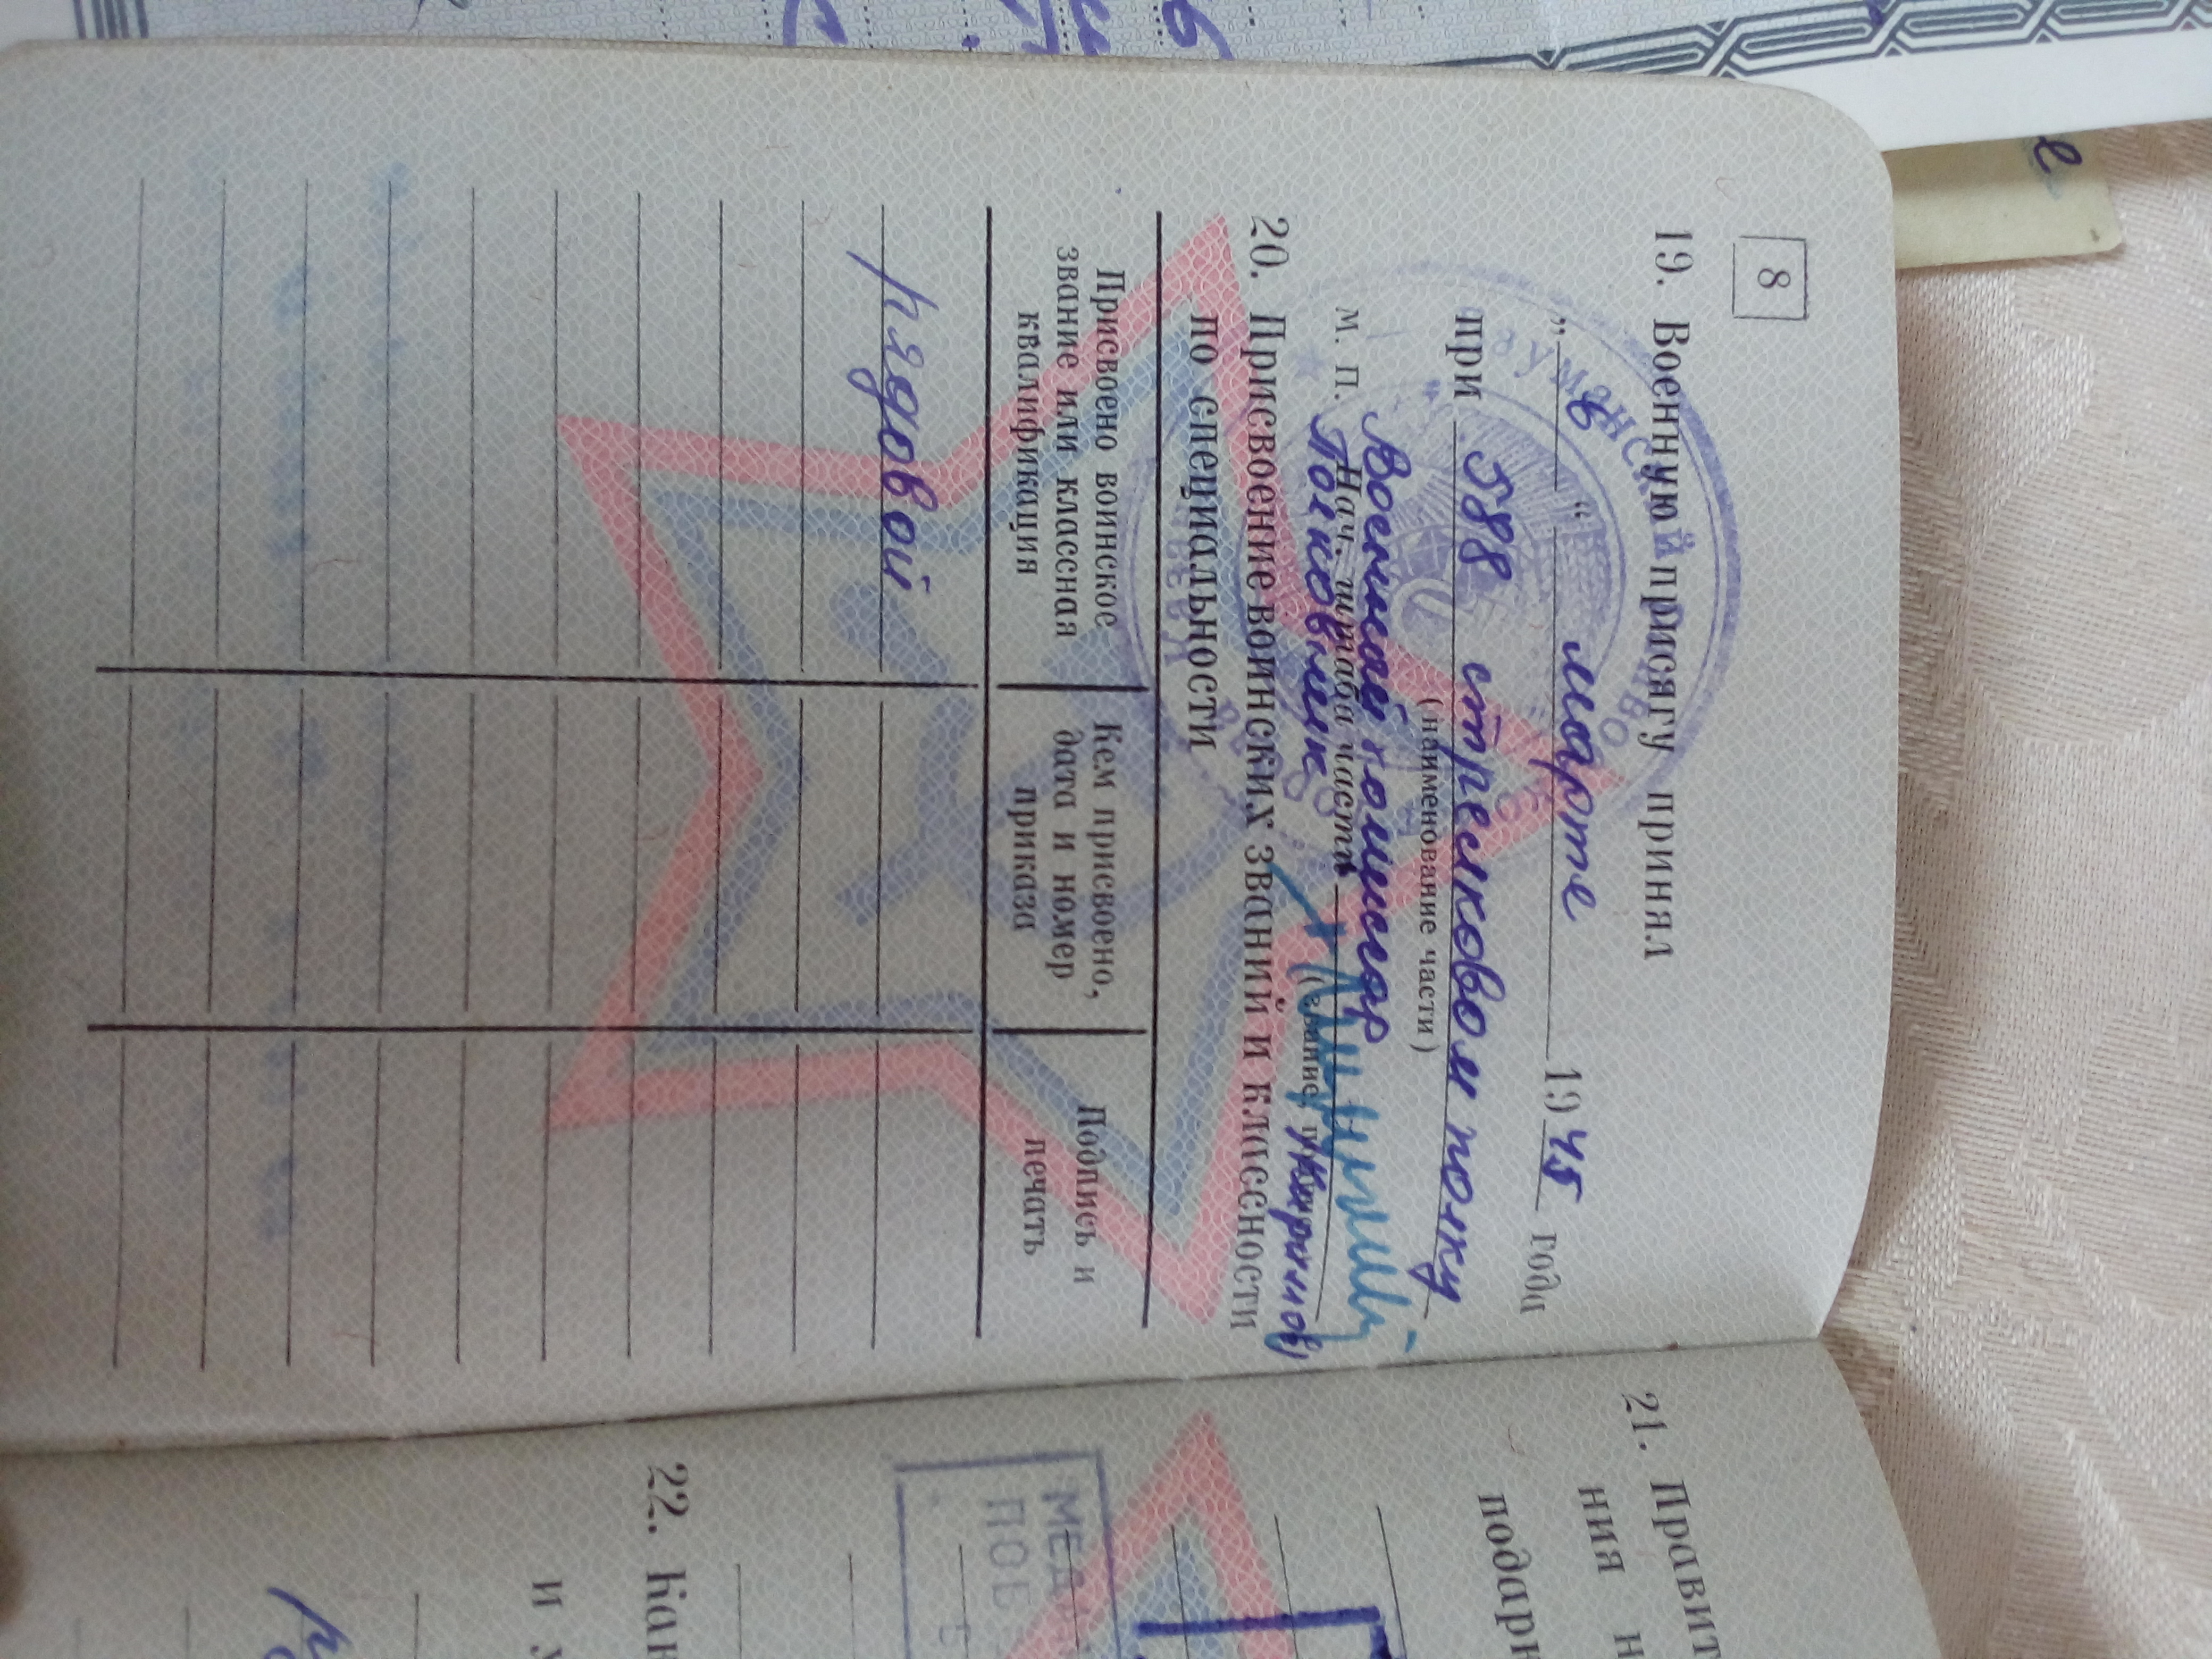 8
19. Военную присягу принял
„ в “ марте 1945 года
при 588 стрелковом полку
(наименование части)
Военный комиссар
М. П. Нач. штаба части
Полковник
20. Присвоение воинских званий и классности
по специальности
Присвоено воинское звание или классная квалификация
Кем присвоено, дата и номер приказа
Подпись и печать
рядовой
21. Правит
ния н
подарк
МЕД
ПОБ
22. Кан
и у